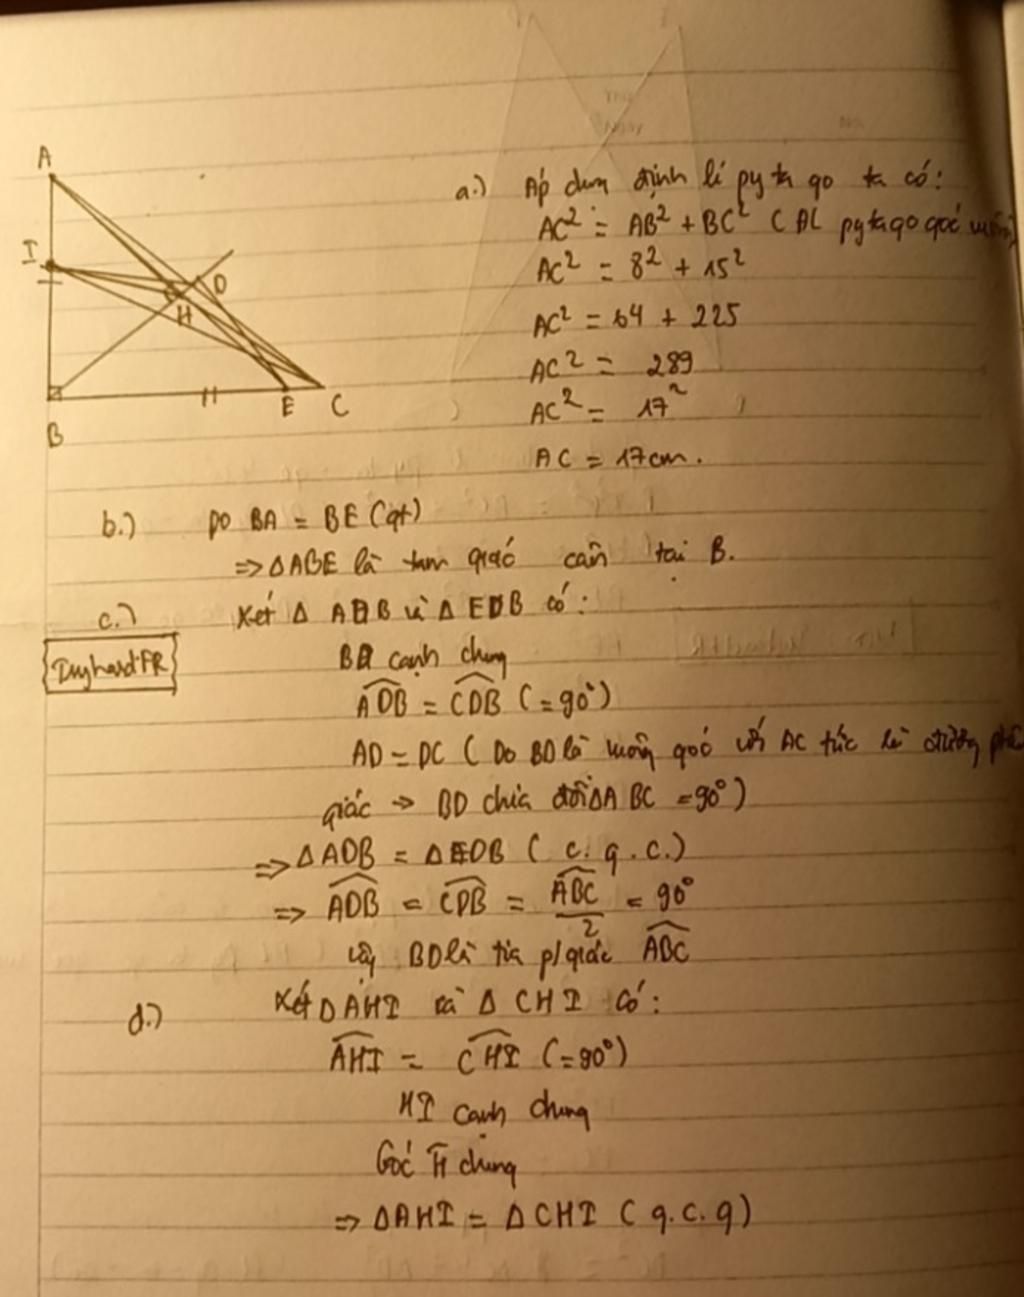 A
I
D
H
B
E
C
a.) Áp dụng định lí py ta go ta có:
AC² = AB² + BC² ( AC pytago góc
AC² = 8² + 15²
AC² = 64 + 225
AC² = 289
AC² = 17²
AC = 17cm.
b.) Do BA = BE (gt)
=> ΔABE là tam giác cân tại B.
c.) Xét Δ ADB và Δ EDB có:
DuyhardFR
BD cạnh chung
ADB = CDB (=90°)
AD = DC ( Do BD là vuông góc với AC tức là đường
giác => BD chia đôi ΔABC = 90°)
=> ΔADB = ΔEDB ( c.g.c.)
=> ADB = CDB = ABC/2 = 90°
Vậy BD là tia p/giác ABC
d.) Xét ΔAHI và Δ CHI có:
AHI = CHI (=90°)
HI cạnh chung
Góc H chung
=> ΔAHI = ΔCHI ( g.c.g)